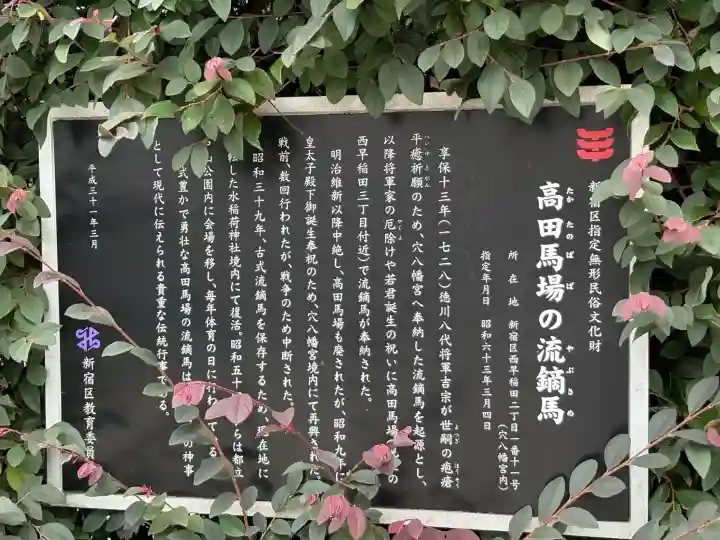 新宿区指定無形民俗文化財
高田馬場の流鏑馬
たかたのばば
やぶさめ
所在地 新宿区西早稲田二丁目一番十一号
(穴八幡宮内)
指定年月日 昭和六十三年三月四日
享保十三年(一七二八)徳川八代将軍吉宗が世嗣の疱瘡
よつぎ
ほうそう
平癒祈願のため、穴八幡宮へ奉納した流鏑馬を起源とし、
へいゆきがん
以降将軍家の厄除けや若君誕生の祝いに高田馬場の
やくよ
西早稲田三丁目付近)で流鏑馬が奉納された。
明治維新以降中絶し、高田馬場も廃されたが、昭和九年
皇太子殿下御誕生奉祝のため、穴八幡宮境内にて再興された
戦前、数回行われたが、戦争のため中断された。
昭和三十九年、古式流鏑馬を保存するため、現在地に
転した水稲荷神社境内にて復活。昭和五十 らは都立
公園内に会場を移し、毎年体育の日に いる
式豊かで勇壮な高田馬場の流鏑馬は の神事
として現代に伝えられる貴重な伝統行事である。
平成三十一年三月
新宿区教育委員